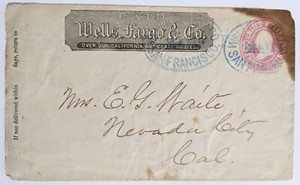 PAID
Wells, Fargo & Co.
OVER OUR CALIFORNIA AND COAST ROUTES.
SAN FRANCISCO
If not delivered within
days, return to
Mrs. E. G. Waite
Nevada City
Cal.